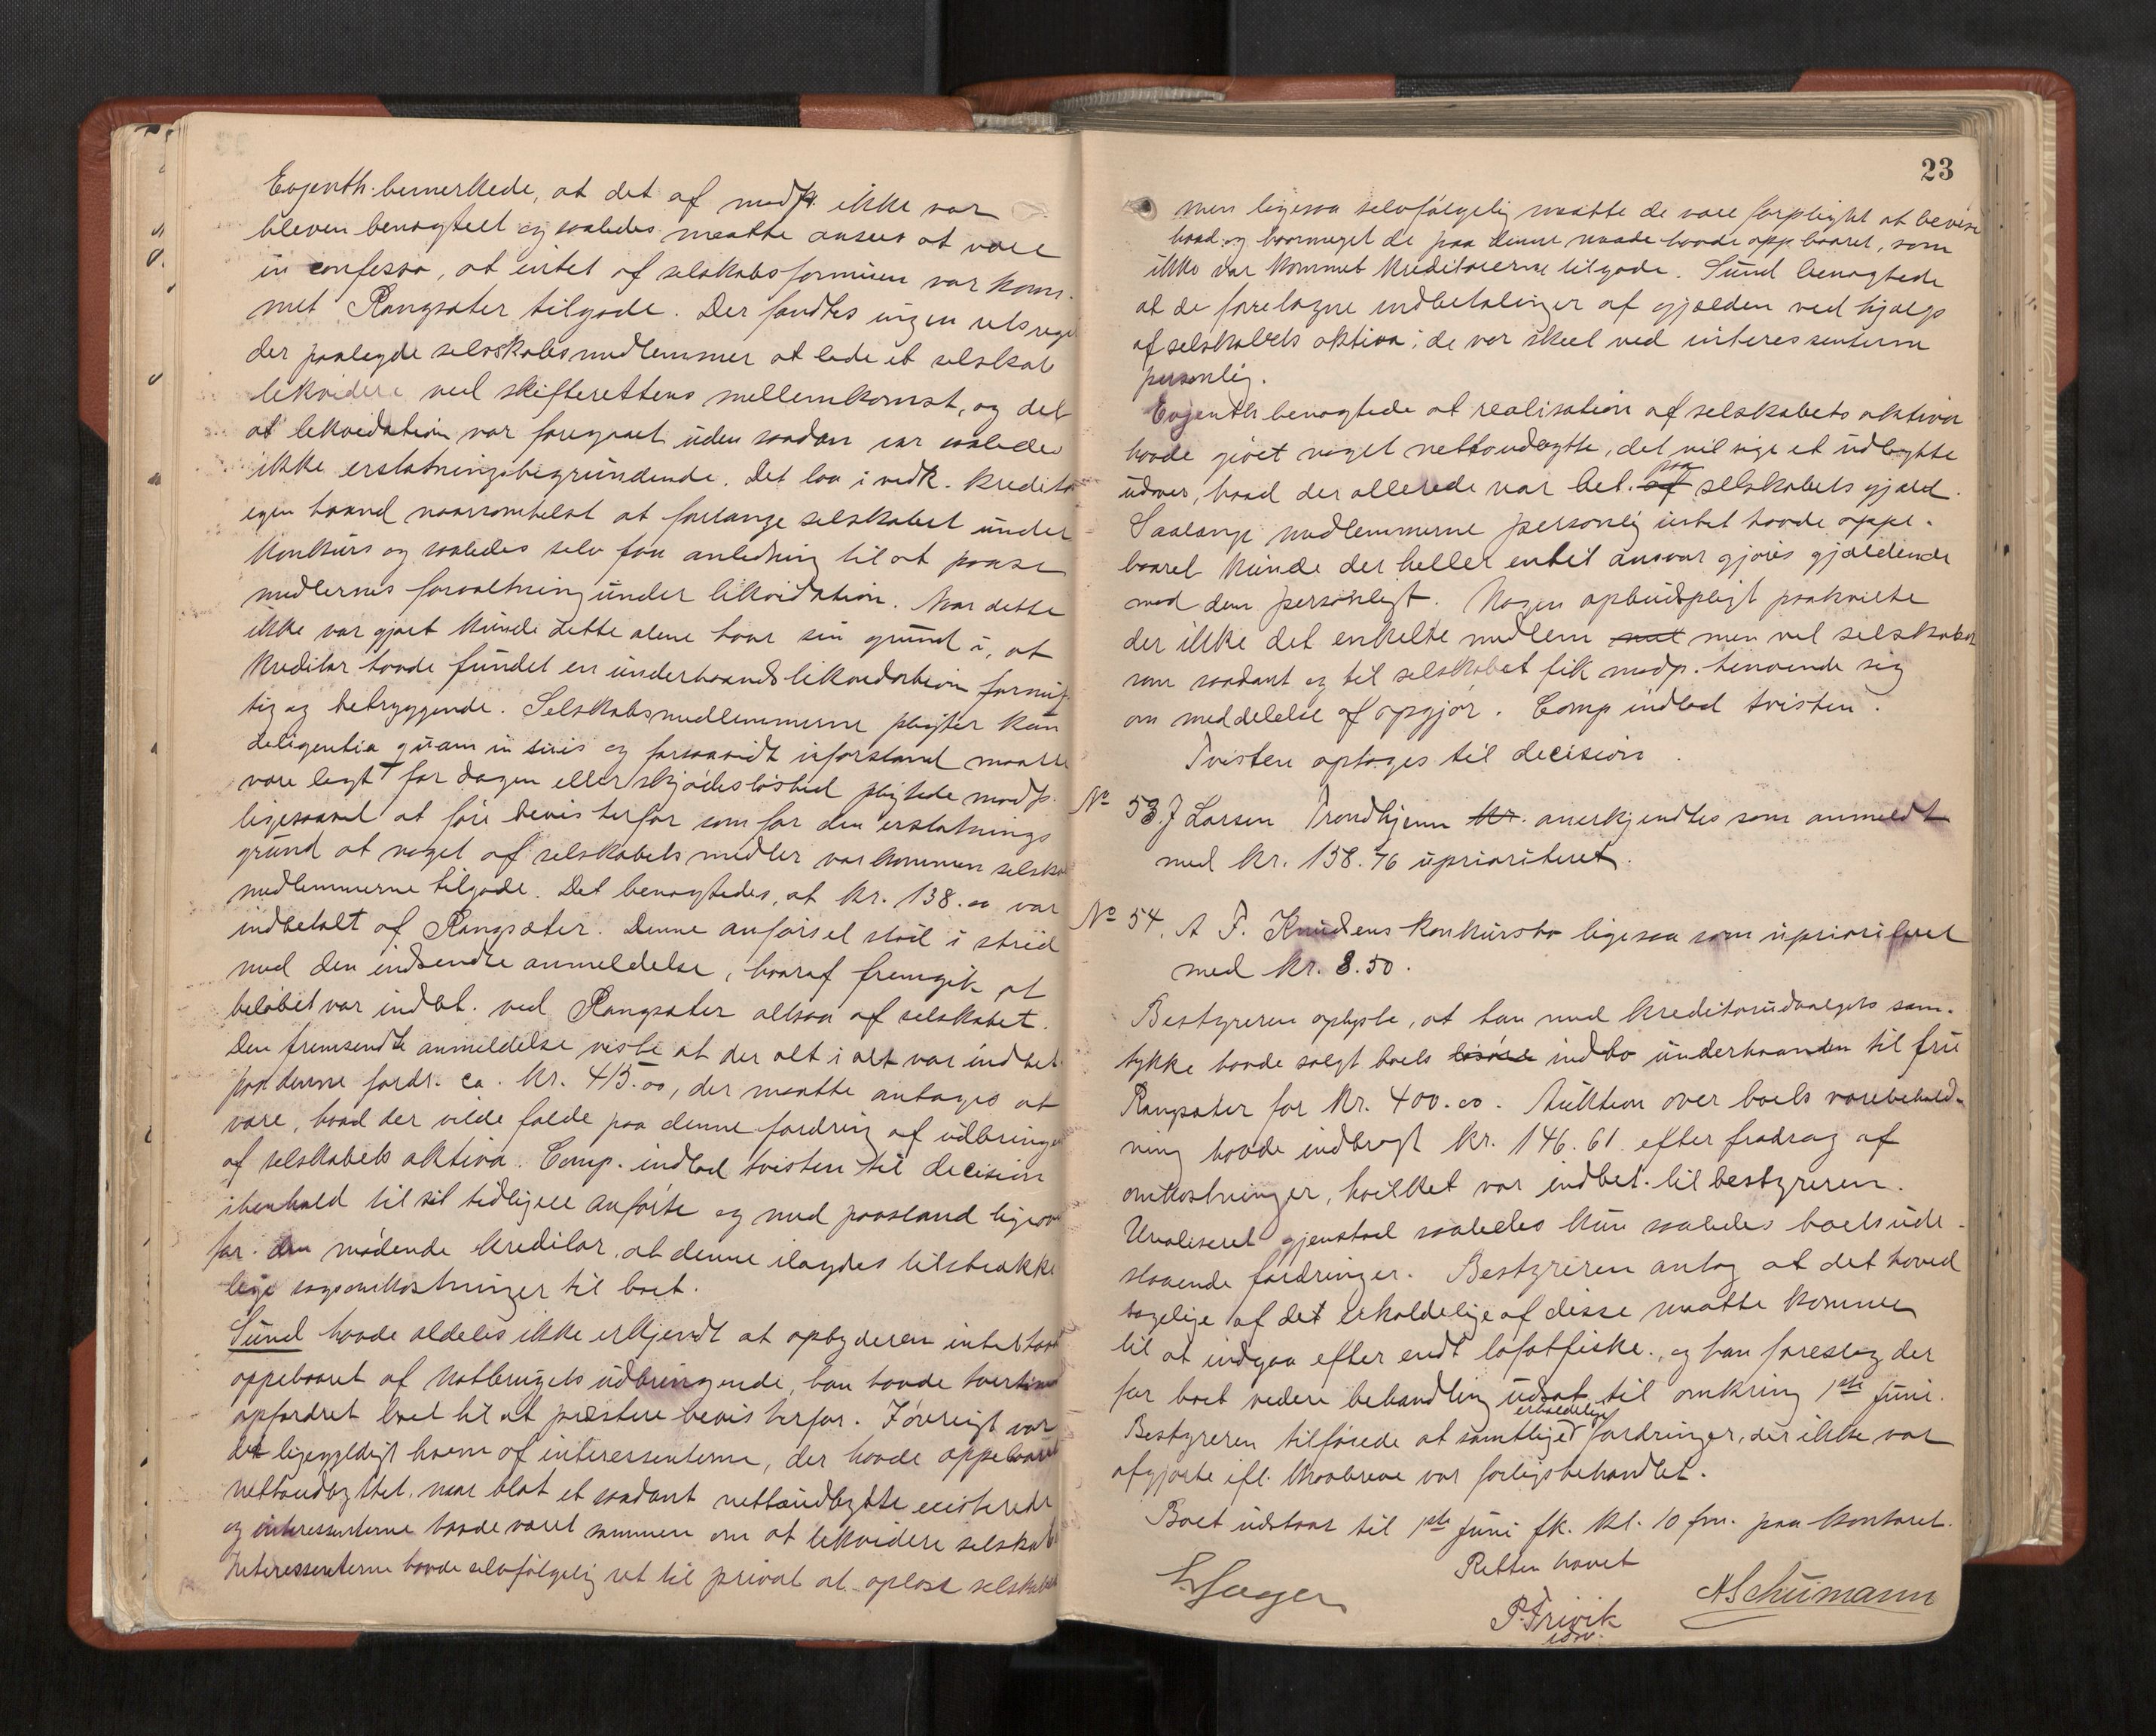 Evjenth bemerkede, at det af modp. ikke var
bleven benægtet og saaledes maatte ansees at være
in confesso, at intet af selskabsformuen var kom-
met Rangsæter tilgode. Der fandtes ingen retsregel
der paalegde selsskabsmedlemmer at lade et selskab
likvidere ved skifterettens mellemkomst, og det
at likvidation var foregaaet uden saadan var saaledes
ikke erstatningsbegrundende. Det laa i vedk. kreditors
egen haand naarsomhelst at forlange selskabet under
konkurs og saaledes selv faa anledning til at paase
midlernes forvaltning under likvidation. Naar dette
ikke var gjort kunde dette alene have sin grund i, at
kreditor havde fundet en underhaandslikvidation fornuf-
tig og betryggende. Selskabsmedlemmerne pligter kun
deligentia quam in suis og forsaavidt uforstand maatte
være lagt for dagen eller skjødesløshed pligtede modp.
ligesaavel at føre bevis herfor som for den erstatnings
grund at noget af selskabets midler var kommen selskabs
medlemmerne tilgode. Det benægtedes, at kr. 138.00 var
indbetalt af Rangsæter. Denne anførsel stod i strid
med den indsendte anmeldelse, hvoraf fremgik at
beløbet var indbt. ved Rangsæter altsaa af selskabet.
Den fremsendte anmeldelse viste at der alt i alt var indbet.
paa denne fordr. ca. kr. 415.00, der maatte antages at
være, hvad der vilde falde paa denne fordring af udbringen
af selskabets aktiva. Comp. indlod tvisten til decision
i henhold til sit tidligere anførte og med paastand ligeov
for den mødende kreditor, at denne ilagdes tilstrække
lige sagsomkostninger til boet.
Sund havde aldeles ikke erkjendt at opbyderen intet havde
oppebaaret af Notbrugets udbringende, han havde tvertimod
opfordret boet til at præstere bevis herfor. Iøvrigt var
det ligegyldigt hvem af interessenterne, der havde oppebaaret
nettoudbyttet, naar blot et saadant nettoudbytte existerede
og interessenterne havde været sammen om at likvidere selskabet
Interessenterne havde selvfølgelig ret til privat at opløse selskabet
23
men ligesaa selvfølgelig maatte de være forpligtet at bevise
hvad og hvormeget de paa denne maade havde oppebaaret, som
ikke var kommet kreditorerne tilgode. Sund benægtede
at de foretagne indbetalinger af gjælden ved hjælp
af selskabets aktiva; de var skeet ved interessenterne
personlig.
Evjenth benægtede at realisation af selskabets aktiva
havde givet noget nettoudbytte, det vil sige et udbytte
udover, hvad der allerede var bet. af paa selskabets gjæld.
Saalænge medlemmerne personlig intet havde oppe-
baaret kunde der heller intet ansvar gjøres gjældende
mod dem personligt. Nogen opbudspligt paahvilte
der ikke det enkelte medlem men vel selskabet
som saadant og til selskabet fik modp. henvende sig
om meddelelse af opgjør. Comp indlod tvisten.
Tvisten optages til decision.
No 53 J Larsen Trondhjem kr. anerkjendtes som anmeldt
med kr. 158.76 uprioriteret.
No 54. A F. Knudens konkursbo ligesaa som uprioriteret
med kr. 8.50.
Bestyreren oplyste, at han med kreditorudvalgets sam-
tykke havde solgt boets løsøre indbo underhaanden til frue
Rangsæter for kr. 400.00. Auktion over boets varebehold-
ning havde indbragt kr. 146.61 efter fradrag af
omkostninger, hvilket var indbet. til bestyreren.
Urealiseret gjenstod saaledes kun saaledes boets ude-
staaende fordringer. Bestyreren antog at det hoved
sagelige af det erholdelige af disse maatte komme
til at indgaa efter endt lofotfiske, og han foreslog der
for boet videre behandling udsat til omkring 1ste Juni.
Bestyreren tilførede at samtlige erholdelige fordringer, der ikke var
afgjorte ifl. kravbreve var forligsbehandlet.
Boet udstaar til 1ste Juni fk. kl. 10 fm. paa kontoret.
Retten hævet
P. Trivik
A Schumann